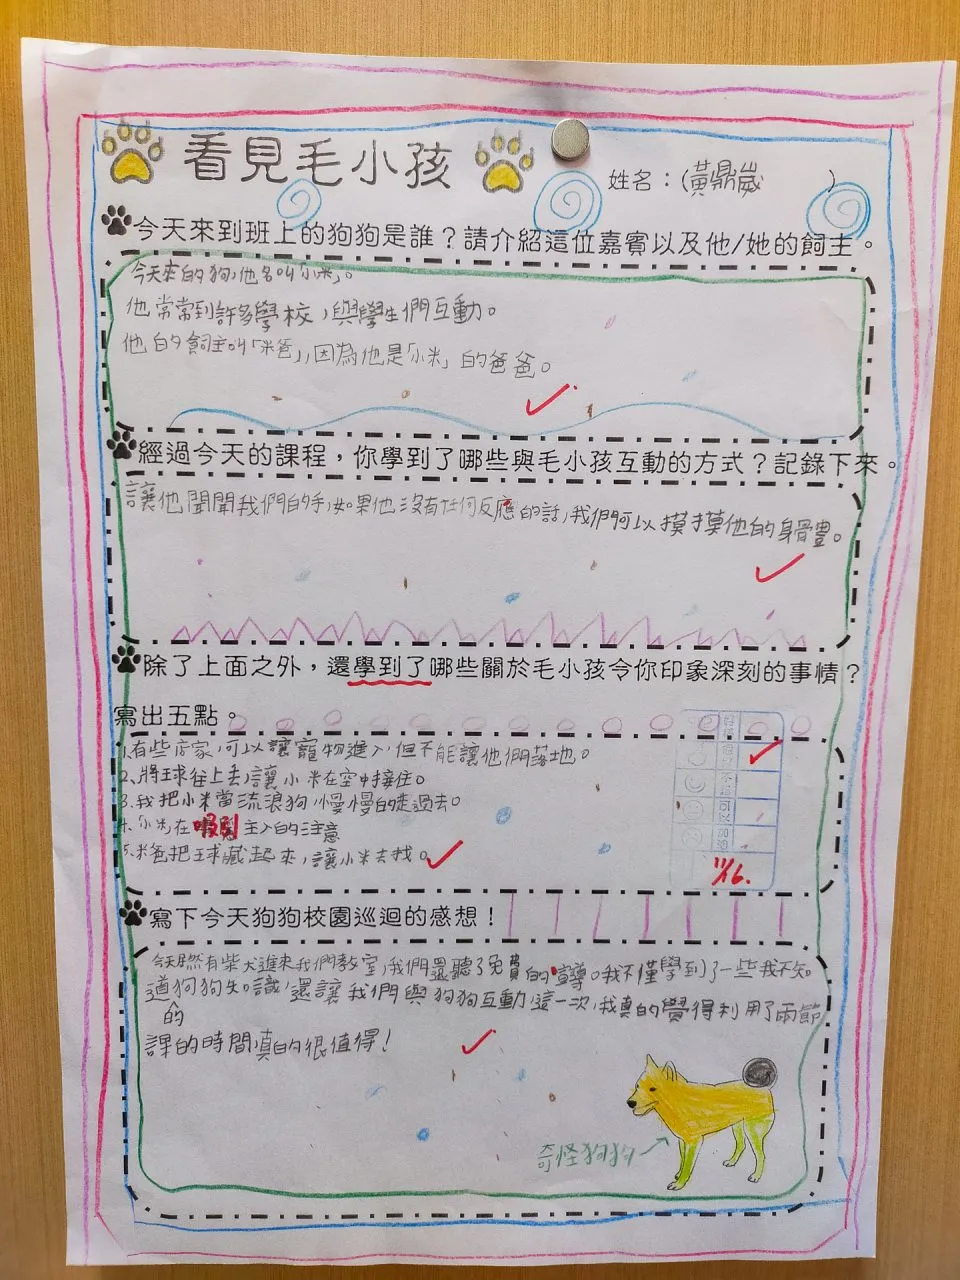 看見毛小孩
姓名：(黃鼎崴)
今天來到班上的狗狗是誰？請介紹這位嘉賓以及他/她的飼主。
今天來的狗，他名叫「小米」。
他常常到許多學校，與學生們互動。
他的飼主叫「米爸」，因為他是「小米」的爸爸。
經過今天的課程，你學到了哪些與毛小孩互動的方式？記錄下來。
讓他聞聞我們的手，如果他沒有任何反應的話，我們可以摸摸他的身體。
除了上面之外，還學到了哪些關於毛小孩令你印象深刻的事情？
寫出五點。
1.有些店家，可以讓寵物進入，但不能讓他們落地。
2.將球往上丟，讓小米在空中接住。
3.我把小米當流浪狗，慢慢的走過去。
4.「小米」在吸引主人的注意
5.米爸把球藏起來，讓小米去找。
11/16.
寫下今天狗狗校園巡迴的感想！
今天居然有柴犬進來我們教室，我們還聽了免費的宣導。我不僅學到了一些我不知
道狗狗的知識，還讓我們與狗狗互動，這一次，我真的覺得利用了兩節
課的時間真的很值得！
奇怪狗狗